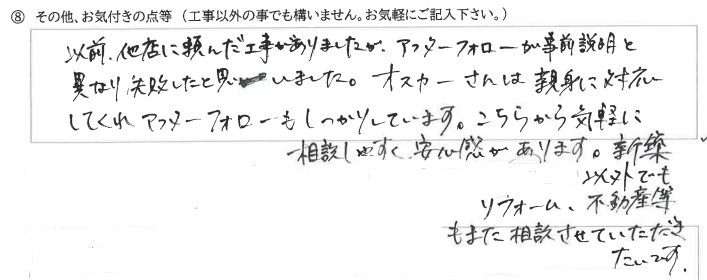 ⑧ その他、お気付きの点等（工事以外の事でも構いません。お気軽にご記入下さい。）
以前、他店に頼んだ工事がありましたが、アフターフォローが事前説明と
異なり失敗したと思いました。オスカーさんは親身に対応
してくれアフターフォローもしっかりしています。こちらから気軽に
相談しやすく安心感があります。新築
以外でも
リフォーム、不動産等
もまた相談させていただき
たいです。